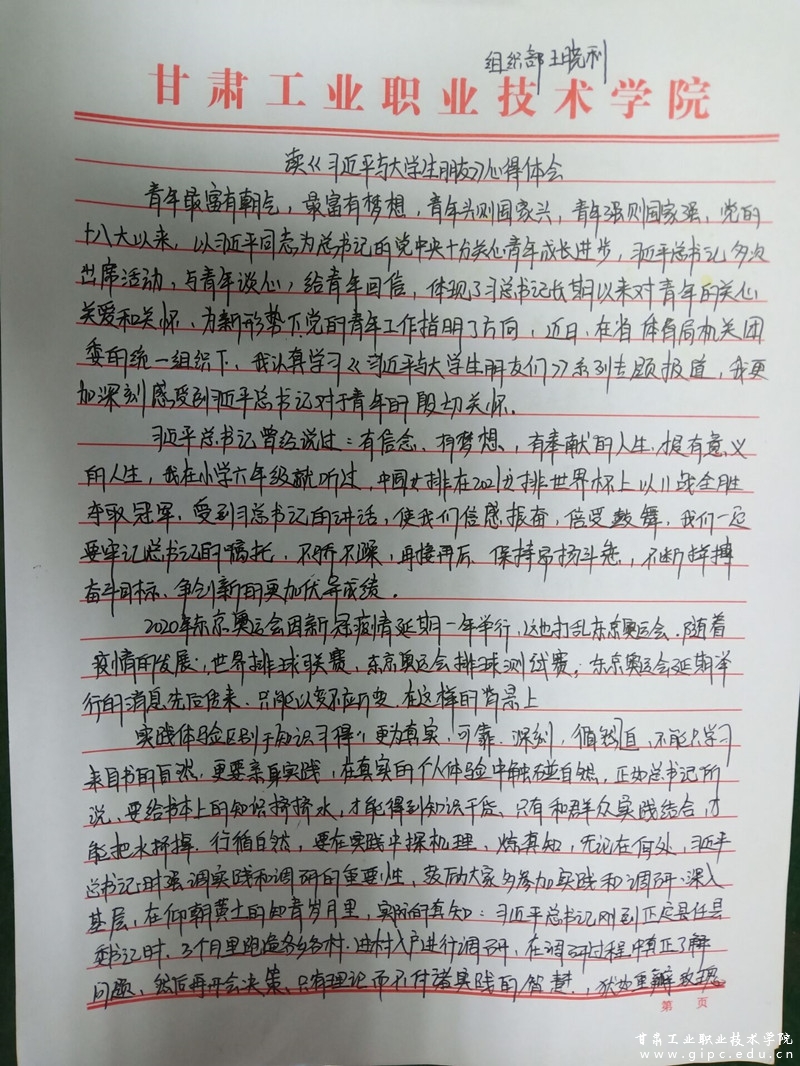 组织部 王晓利
甘肃工业职业技术学院
读《习近平与大学生朋友》心得体会
青年最富有朝气，最富有梦想，青年兴则国家兴，青年强则国家强，党的
十八大以来，以习近平同志为总书记的党中央十分关心青年成长进步，习近平总书记多次
出席活动，与青年谈心，给青年回信，体现了习总书记长期以来对青年的关心
关爱和关怀，为新形势下党的青年工作指明了方向，近日，在省体育局机关团
委的统一组织下，我认真学习《习近平与大学生朋友们》系列专题报道，我更
加深刻感受到习近平总书记对于青年的殷切关怀．
习近平总书记曾经说过：有信念、有梦想、有奉献的人生，是有意义
的人生，我在小学六年级就听过，中国女排在2021女排世界杯上以11战全胜
夺取冠军，受到习总书记的讲话，使我们倍感振奋，倍受鼓舞，我们一定
要牢记总书记的嘱托，不骄不躁，再接再厉，保持昂扬斗志，不断
奋斗目标、争创新的更加优异成绩．
2020年东京奥运会因新冠疫情延期一年举行，这也打乱东京奥运会．随着
疫情的发展，世界排球联赛，东京奥运会排球测试赛，东京奥运会延期举
行的消息先后传来．只能以变应，在这样的背景上
实践体验区别于知识习得，更为真实，可靠，深刻，值钱，不能只学习
来自书的自然，更要亲身实践，在真实的个人体验中触碰自然，正如总书记所
说，要给书本上的知识挤挤水，才能得到知识干货，只有和群众实践结合，才
能把水挤掉．行循自然，要在实践中探机理，炼真知，无论在何处，习近平
总书记时强调实践和调研的重要性，鼓励大家多参加实践和调研，深入
基层，在仰朝黄土的知青岁月里，实际的真知：习近平总书记刚到正定县任县
委书记时，3个月里跑遍各乡各村，进村入户进行调研，在调研过程中真正了解
问题，然后再开会决策、只有理论而不付诸实践的智慧，犹如
第 页
甘肃工业职业技术学院
www.gipc.edu.cn